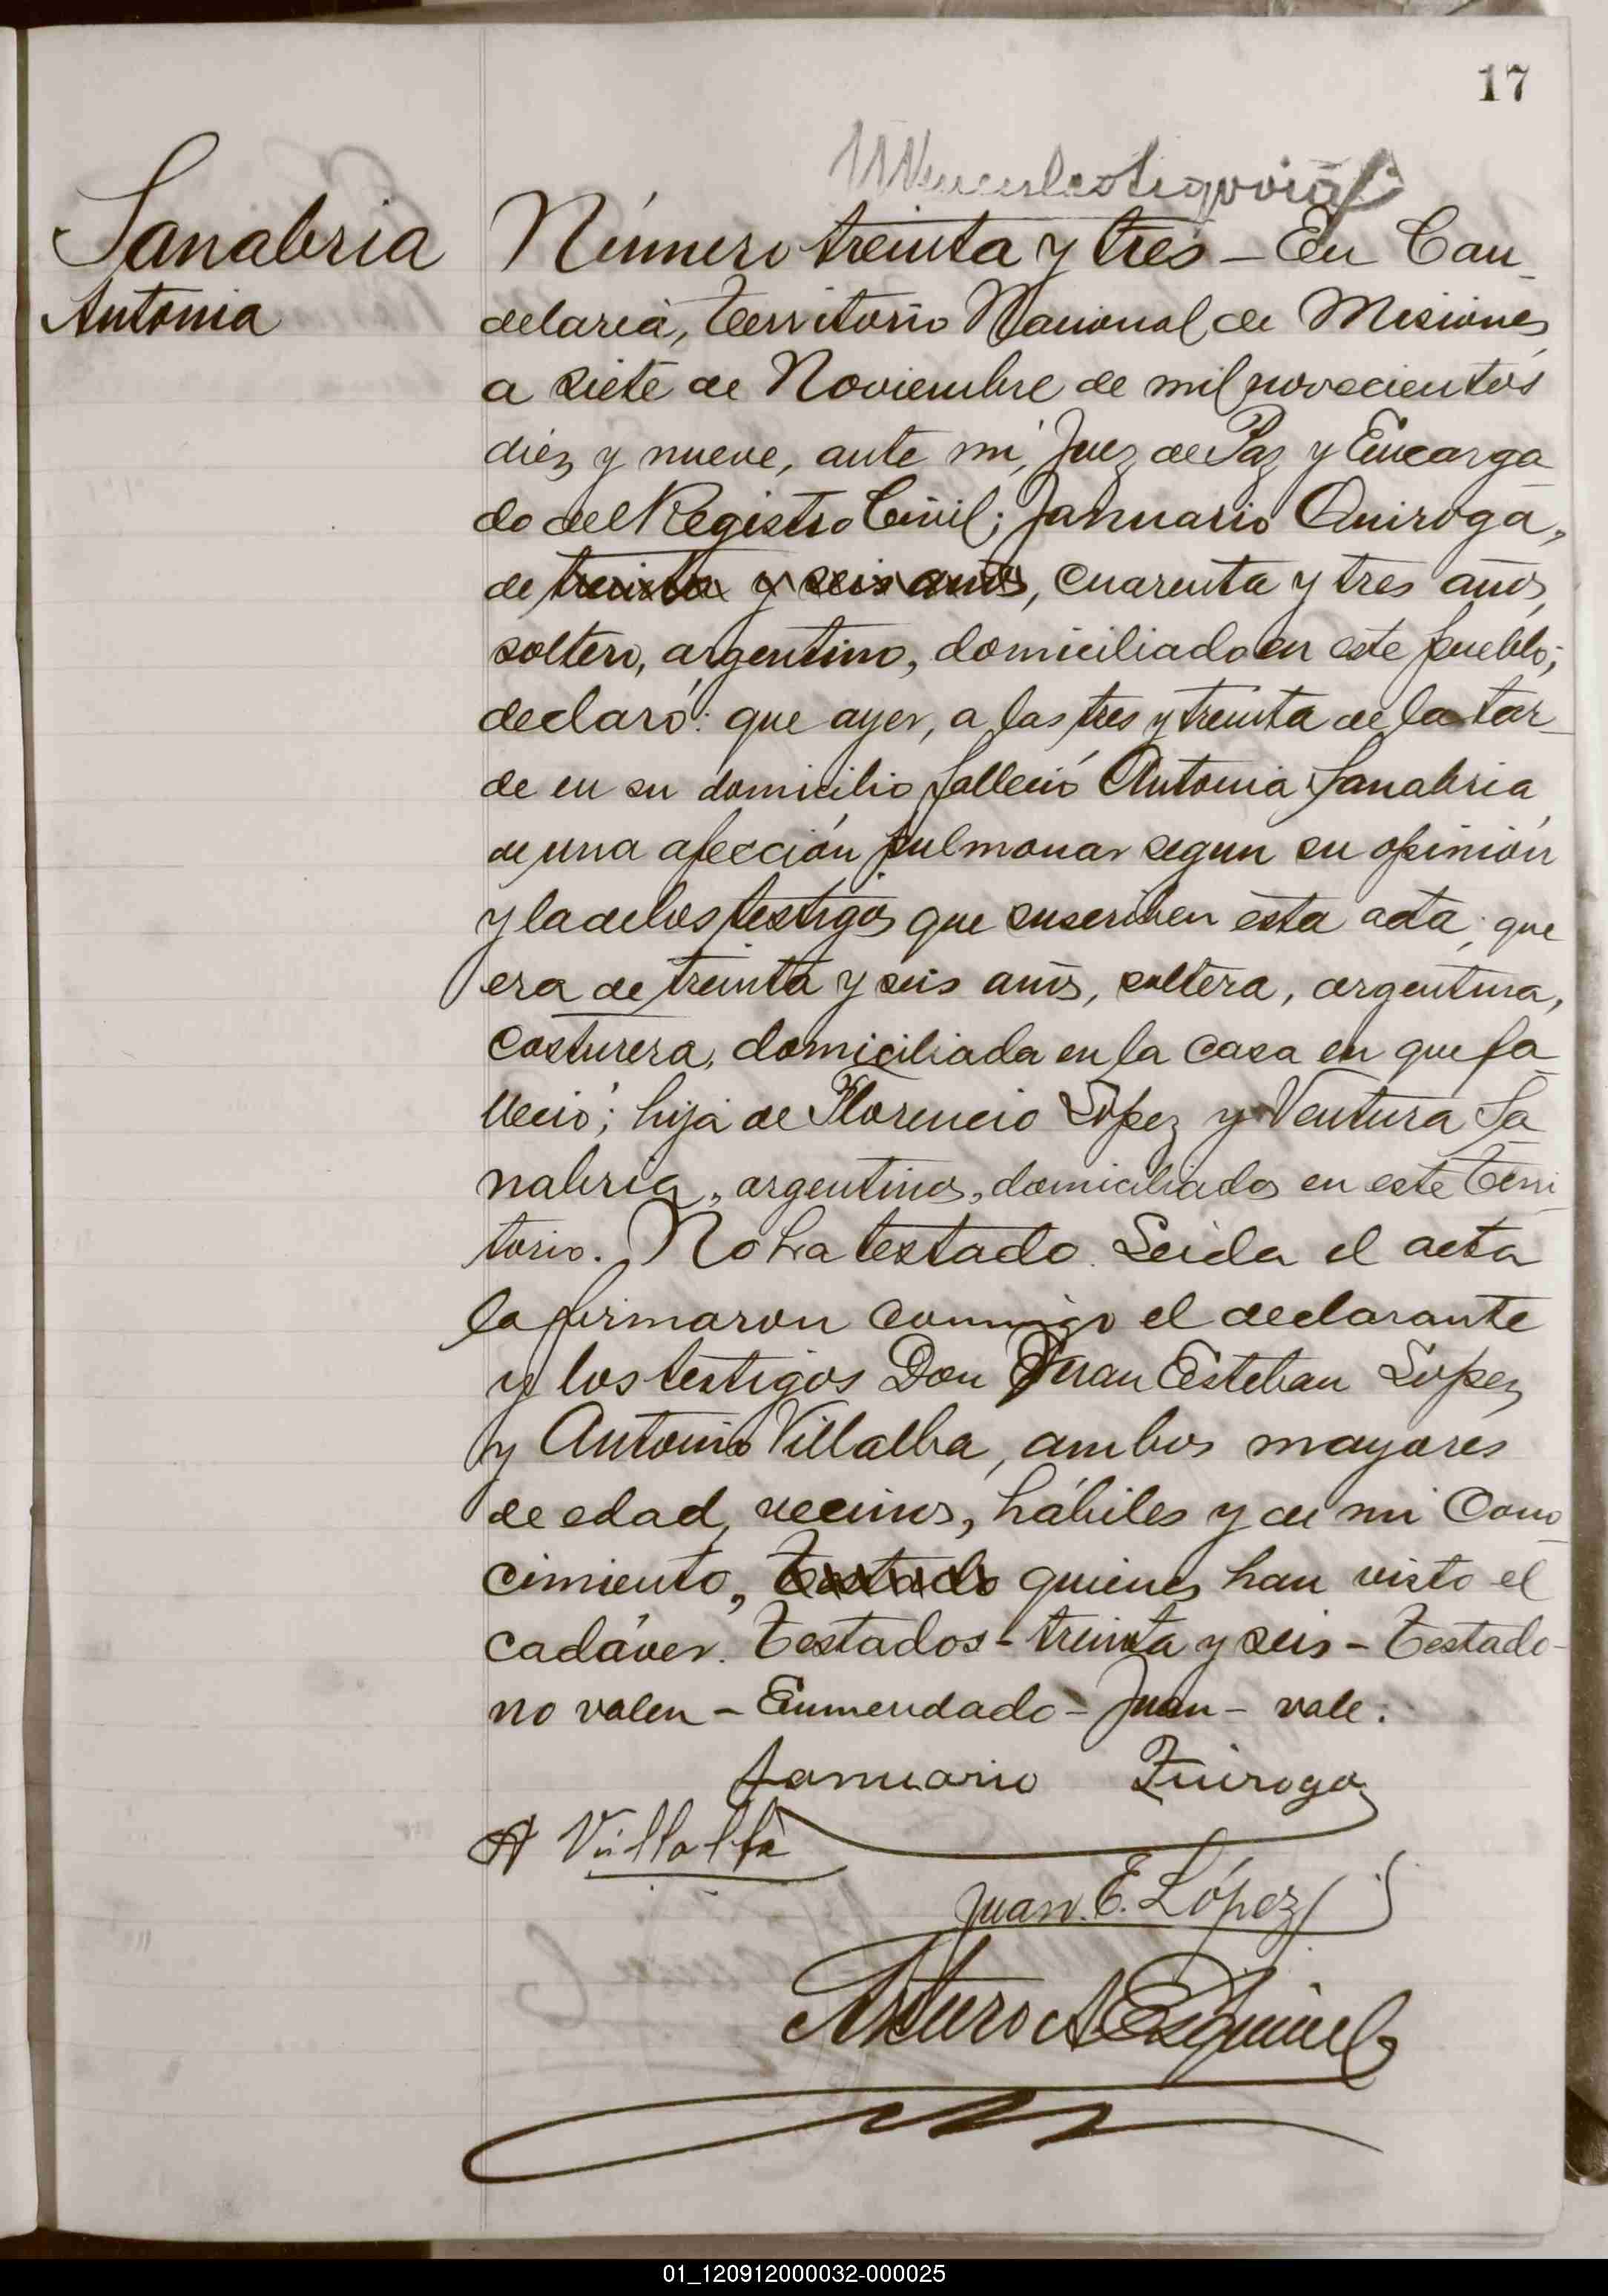 17
Sanabria
Antonia
Número treinta y tres – En Can-
delaria, Territorio Nacional de Misiones
a siete de Noviembre de mil novecientos
diez y nueve, ante mi, Juez de Paz y Encarga-
do del Registro Civil; Januario Quiroga,
de treinta y seis años, cuarenta y tres años,
soltero, argentino, domiciliado en este pueblo;
declaró: que ayer, a las tres y treinta de la tar-
de en su domicilio falleció Antonia Sanabria
de una afección pulmonar segun su opinión
y la de los testigos que suscriben esta acta; que
era de treinta y seis años, soltera, argentina,
costurera, domiciliada en la casa en que fa-
lleció; hija de Florencio López y Ventura Sa-
nabria, argentinos, domiciliados en este Terri-
torio. No ha testado. Leida el acta
la firmaron conmigo el declarante
y los testigos Don Juan Esteban Lopez
y Antonio Villalba, ambos mayores
de edad, vecinos, hábiles y de mi cono-
cimiento, Testado quienes han visto el
cadáver. Testados – treinta y seis – Testado –
no valen – Enmendado – Juan – vale.
Januario Quiroga
A Villalba
Juan. E. López
Arturo A Esquivel
01_120912000032-000025